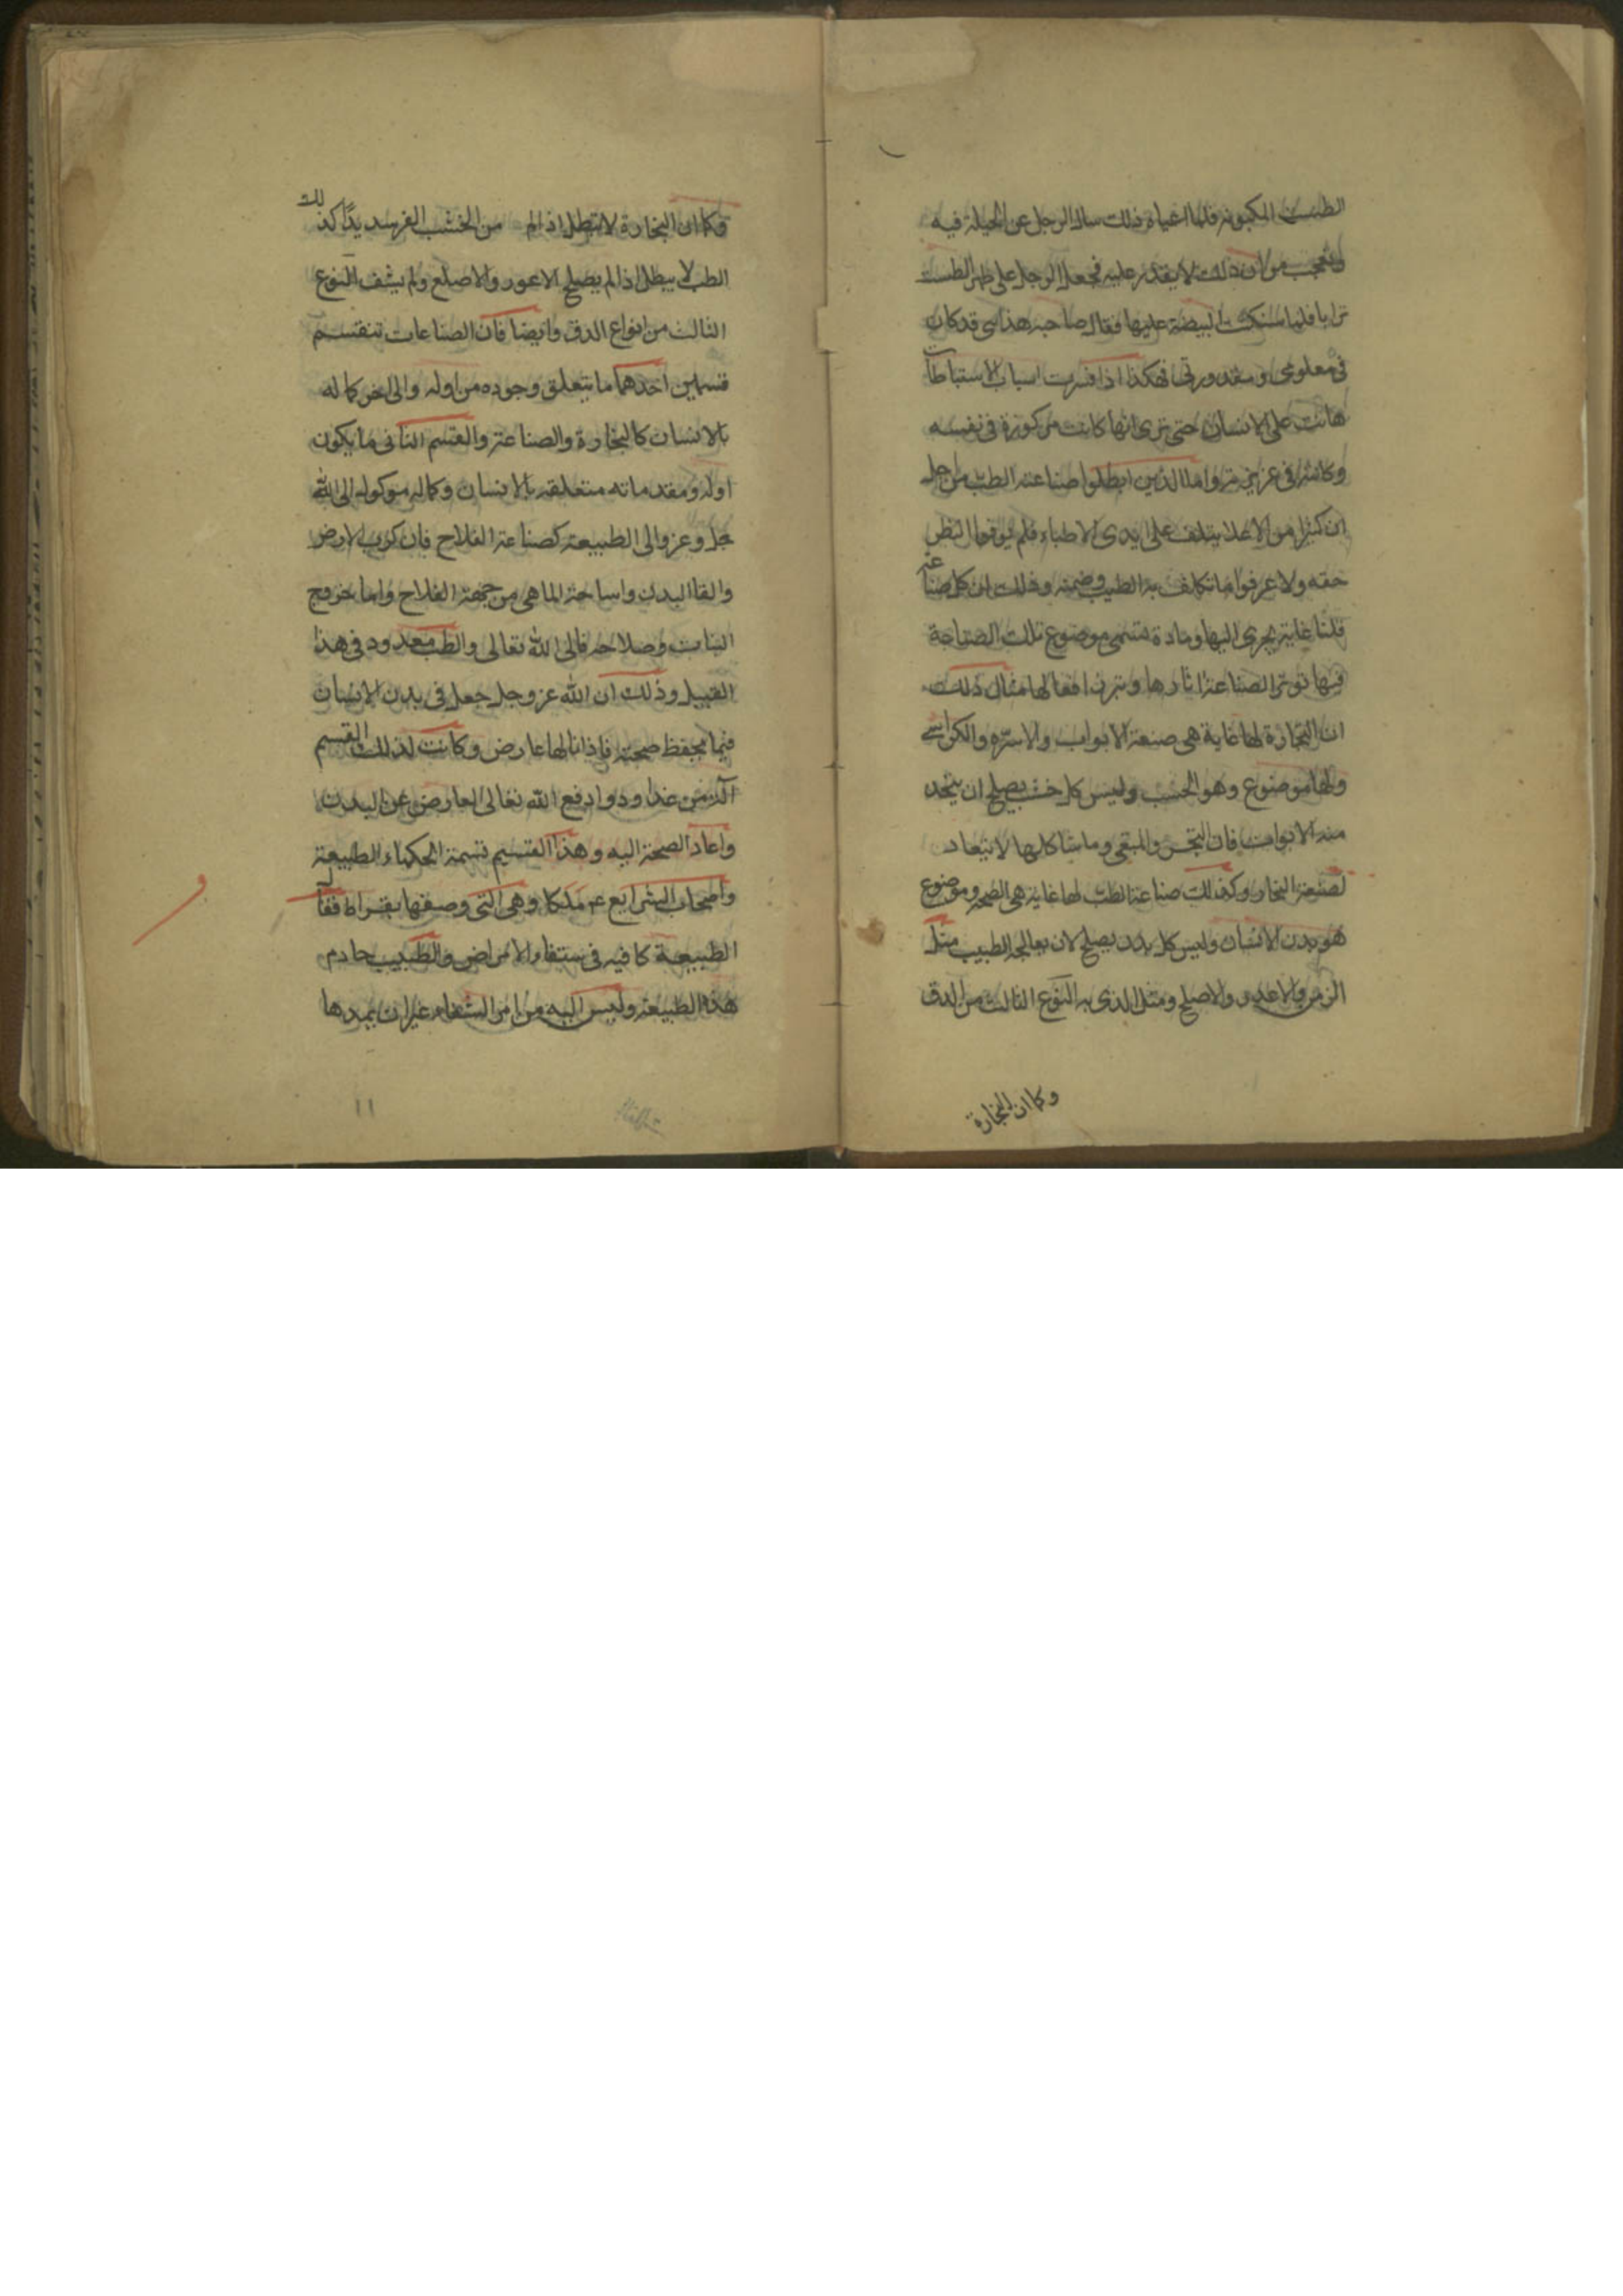 الطست المكبوبه فلما اعياه ذلك سال الرجل عن الحيلة فيه
وتعجب من ان ذلك لا يقدر عليه فجعل الرجل على ظهر الطست
ترابا فلما سكنت البيضة عليها فقال صاحبه هذا شى قد كان
فى معلومى ومقدورى فهكذا اذا فسرت اسباب الاستنباطات
هانت على الانسان حتى يرى انها كانت مركوزة فى نفسه
وكامنه فى غريزته واما الذين ابطلوا صناعة الطب من اجل
ان كثيرا من الاعلا يتلف على ايدى الاطباء فلم يوفوا النظر
حقه ولا عرفوا ما تكلف به الطبيب وضمنه وذلك ان كل صناعة
فلنا غاية يجرى اليها ومادة تسمى موضوع تلك الصناعة
فيها توثر الصناعة اثارها وتبرز افعالها مثال ذلك
ان النجارة لها غاية هى صنعة الابواب والاسره والكراسى
ولها موضوع وهو الخشب وليس كل خشب يصلح ان يتخذ
منه الابواب فان النخر والمبقى وما شاكلها لا تنقاد
لصنعة النجار وكذلك صناعة الطب لها غاية هى الصحه وموضوع
هو بدن الانسان وليس كل بدن يصلح لان يعالجه الطبيب مثل
الزمن والاعور والاصلع ومثل الذى به النوع الثالث من الدق
وكما ان النجارة
فكما ان النجارة لا تبطل اذا لم من الخشب الغر سديدا كذلك
الطب لا يبطل اذا لم يصلح الاعور والاصلع ولم يشف النوع
الثالث من انواع الدق وايضا فان الصناعات تنقسم
قسمين احدهما ما يتعلق وجوده من اوله والى اخر كماله
بالانسان كالنجارة والصناعة والقسم الثانى ما يكون
اوله ومقدماته متعلقه بالانسان وكماله موكوله الى الله
جل وعز والى الطبيعة كصناعة الفلاح فان كرب الارض
والقا البذر واساحة الما هى من جهة الفلاح واما خروج
النبات وصلاحه فالى الله تعالى والطب معدود فى هذا
القبيل وذلك ان الله عز وجل جعل فى بدن الانسان
فيما يحفظ صحته فاذا نالها عارض وكانت لذلك القسم
اكثر من غذا ودوا دفع الله تعالى العارض عن البدن
واعاد الصحة اليه وهذا القسيم تسمة الحكماء الطبيعة
واصحاب الشرايع عم ملكا وهى التى وصفها بقراط فقال
الطبيعة كافيه فى ستفاء الامراض والطبيب خادم
هذه الطبيعة وليس اليه من امر الشفاء غير ان يمدها
١١